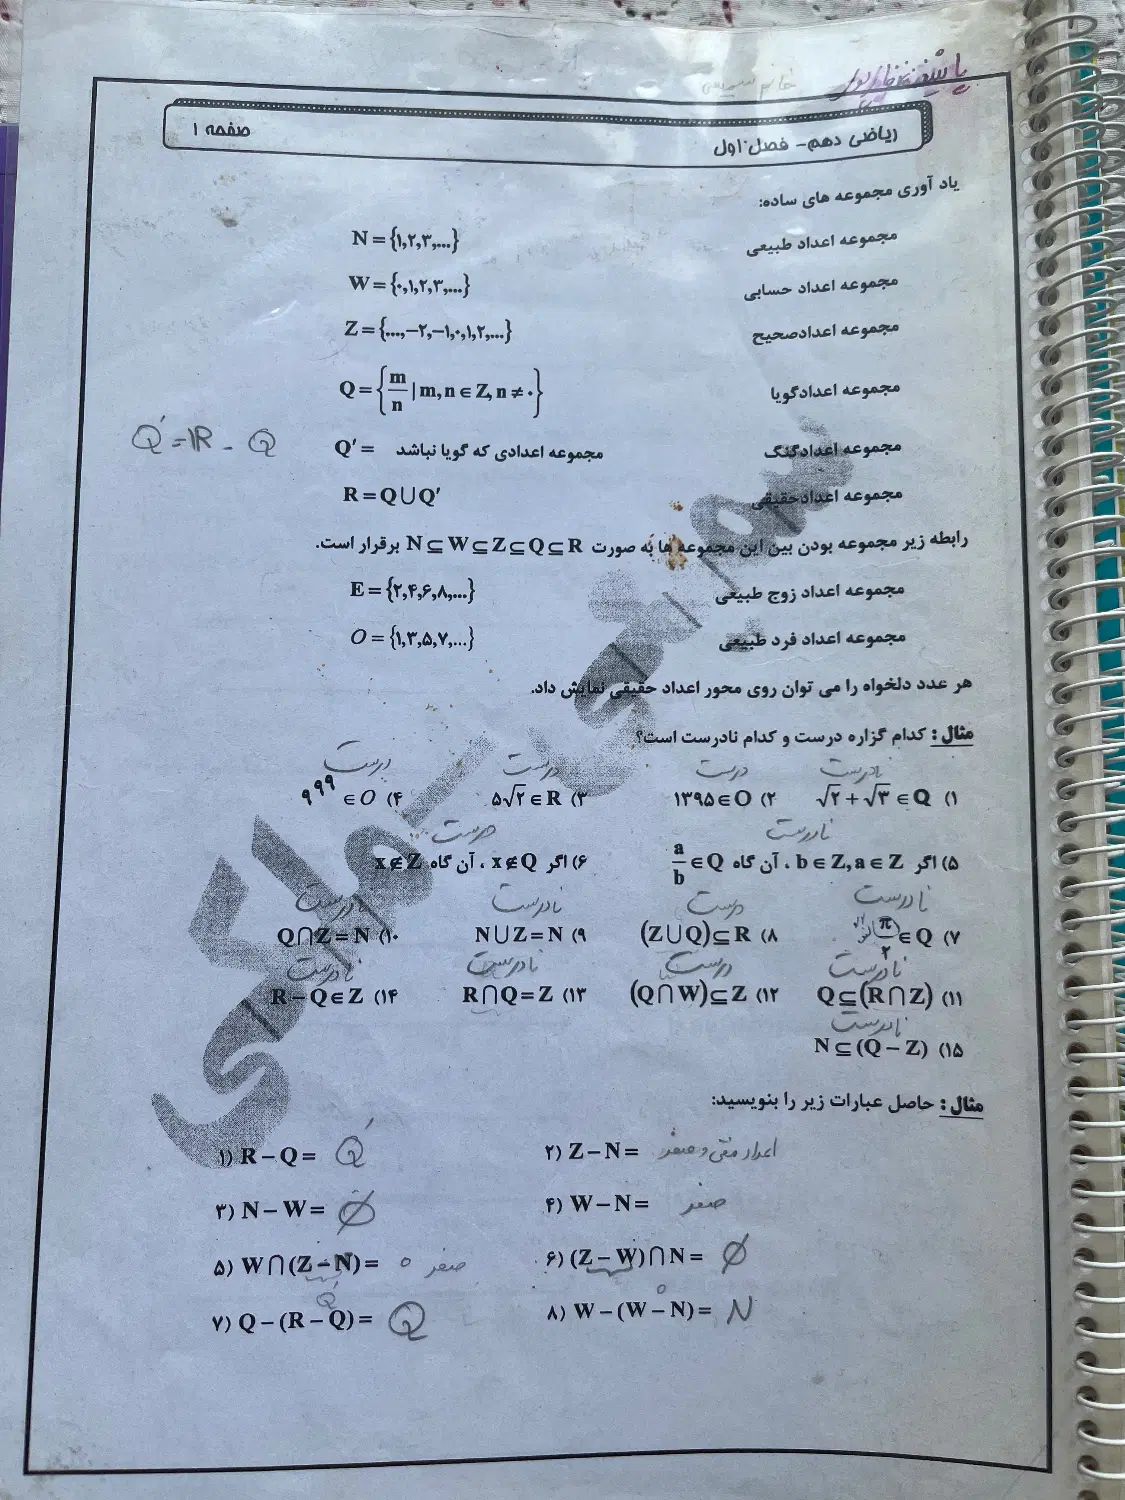 خانم شمسی
ریاضی دهم- فصل اول
صفحه ۱
یاد آوری مجموعه های ساده:
مجموعه اعداد طبیعی N = {۱,۲,۳,...}
مجموعه اعداد حسابی W = {۰,۱,۲,۳,...}
مجموعه اعدادصحیح Z = {...,−۲,−۱,۰,۱,۲,...}
مجموعه اعدادگویا Q = {m/n | m,n ∈ Z, n ≠ ۰}
مجموعه اعدادگنگ Q′ = مجموعه اعدادی که گویا نباشد Q′ = IR - Q
مجموعه اعدادحقیقی R = Q ∪ Q′
رابطه زیر مجموعه بودن بین این مجموعه ها به صورت N ⊆ W ⊆ Z ⊆ Q ⊆ R برقرار است.
مجموعه اعداد زوج طبیعی E = {۲,۴,۶,۸,...}
مجموعه اعداد فرد طبیعی O = {۱,۳,۵,۷,...}
هر عدد دلخواه را می توان روی محور اعداد حقیقی نمایش داد.
مثال : کدام گزاره درست و کدام نادرست است؟
نادرست درست درست درست
۱) √۲ + √۳ ∈ Q ۲) ۱۳۹۵ ∈ O ۳) ۵√۲ ∈ R ۴) ۹۹۹ ∈ O
نادرست درست
۵) اگر b ∈ Z, a ∈ Z ، آن گاه a/b ∈ Q ۶) اگر x ∉ Q ، آن گاه x ∉ Z
نادرست درست نادرست نادرست
۷) π/۲ ∈ Q ۸) (Z ∪ Q) ⊆ R ۹) N ∪ Z = N ۱۰) Q ∩ Z = N
نادرست درست نادرست نادرست
۱۱) Q ⊆ (R ∩ Z) ۱۲) (Q ∩ W) ⊆ Z ۱۳) R ∩ Q = Z ۱۴) R − Q ∈ Z
نادرست
۱۵) N ⊆ (Q − Z)
مثال : حاصل عبارات زیر را بنویسید:
۱) R − Q = Q′ ۲) Z − N = اعداد منفی و صفر
۳) N − W = ∅ ۴) W − N = صفر
۵) W ∩ (Z − N) = ۰ صفر ۶) (Z − W) ∩ N = ∅
Q′ ۰
۷) Q − (R − Q) = Q ۸) W − (W − N) = N